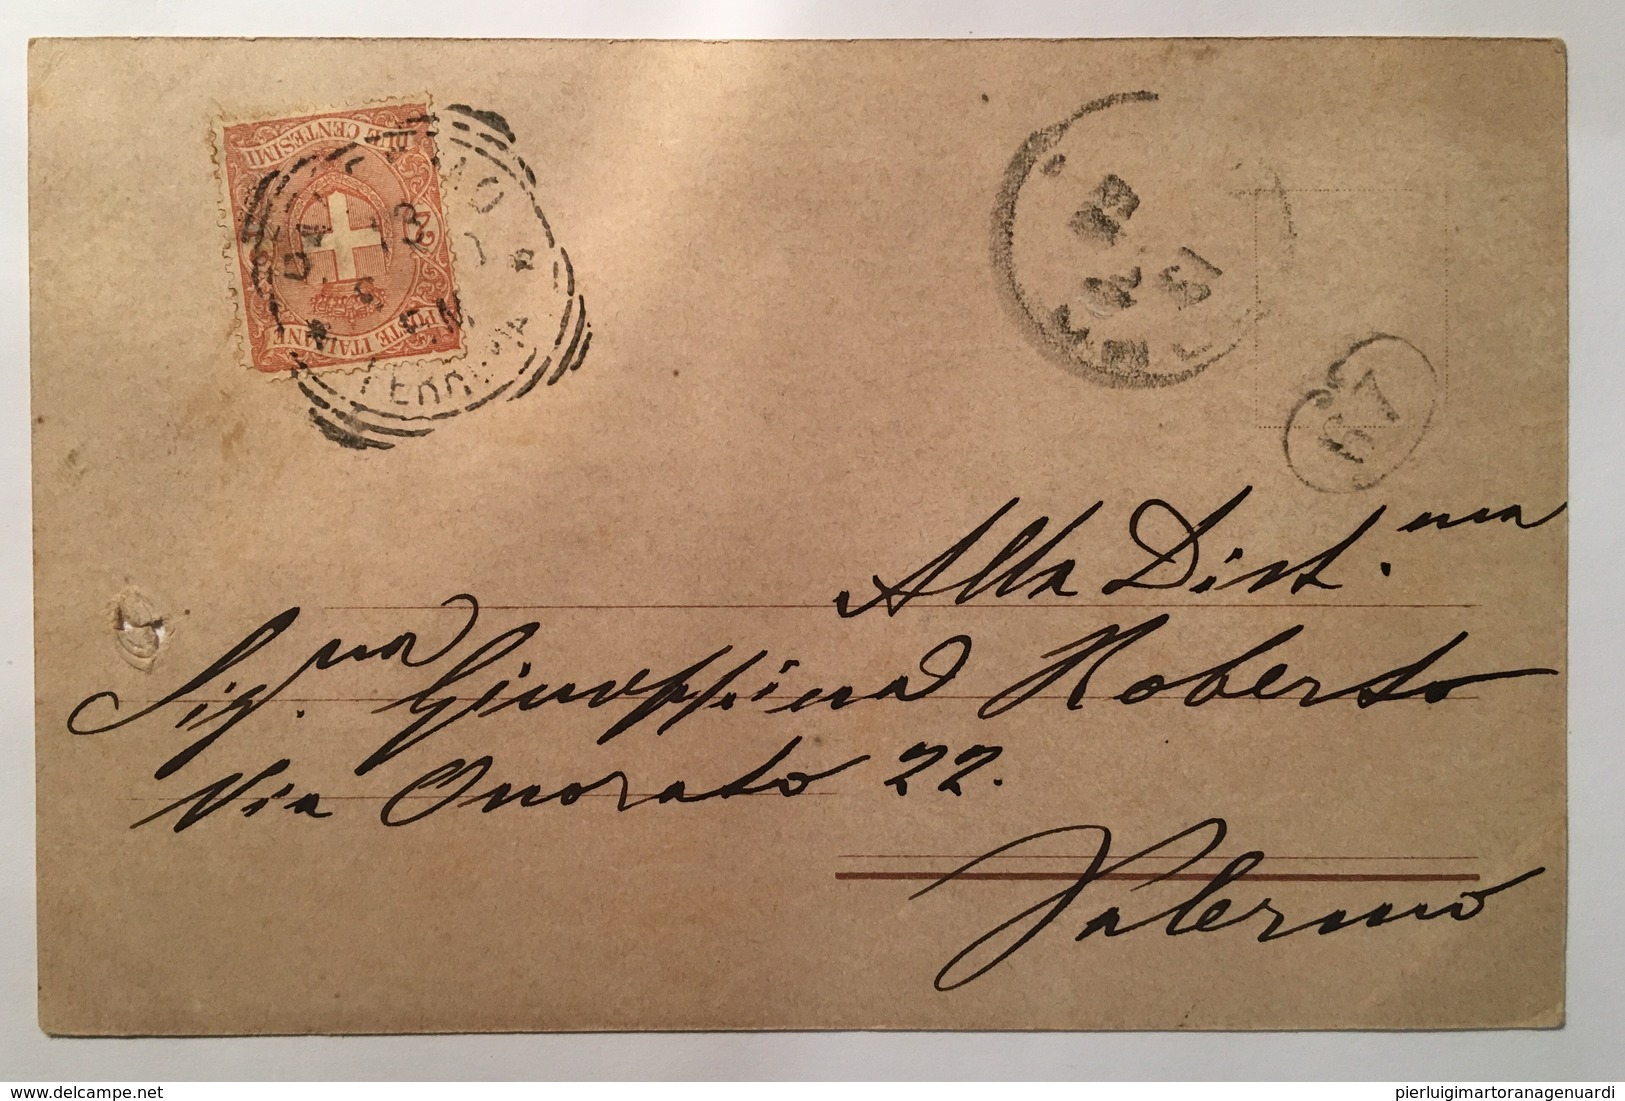 DUE CENTESIMI
2
POSTE ITALIANE
FERROVIA
67
Alla Dist.ma
Sig.na Giuseppina Roberto
Via Onorato 22.
Palermo
delcampe.net
pierluigimartoranagenuardi